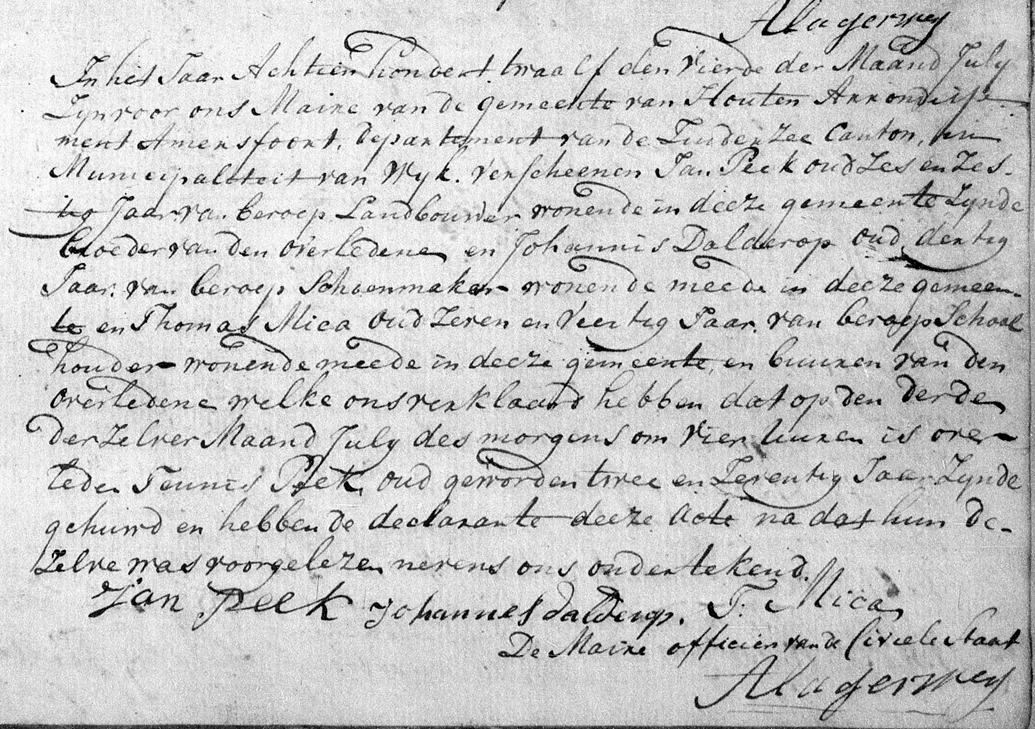 Alagerwey
In het Jaar Achtien hondert twaalf den Vierde der Maand July
Zyn voor ons Maire van de gemeente van Houten Arrondisse-
ment Amersfoort, departement van de Zuider Zee Canton, en
Municipaliteit van Wyk. verscheenen Jan Peek oud Zes en Zes-
tig Jaar van beroep Landbouwer wonende in deeze gemeente Zynde
broeder van den overledene en Johannis Dalderop oud dertig
Jaar. van beroep Schoenmaker wonende meede in deeze gemeen-
te en Thomas Mica oud Zeven en Veertig Jaar. van beroep School
houder wonende meede in deeze gemeente, en buuren van den
overledene welke ons verklaard hebben dat op den derde
der Zelver Maand July des morgens om vier uuren is over-
leden Teunis Peek, oud geworden twee en Zeventig Jaar Zynde
gehuwd en hebben de declarante deeze acte na dat hun de-
Zelve was voorgelezen nevens ons ondertekend.
Jan Peek Johannes dalderop. T: Mica
De Maire officier van de Civiele Staat
Alagerwey